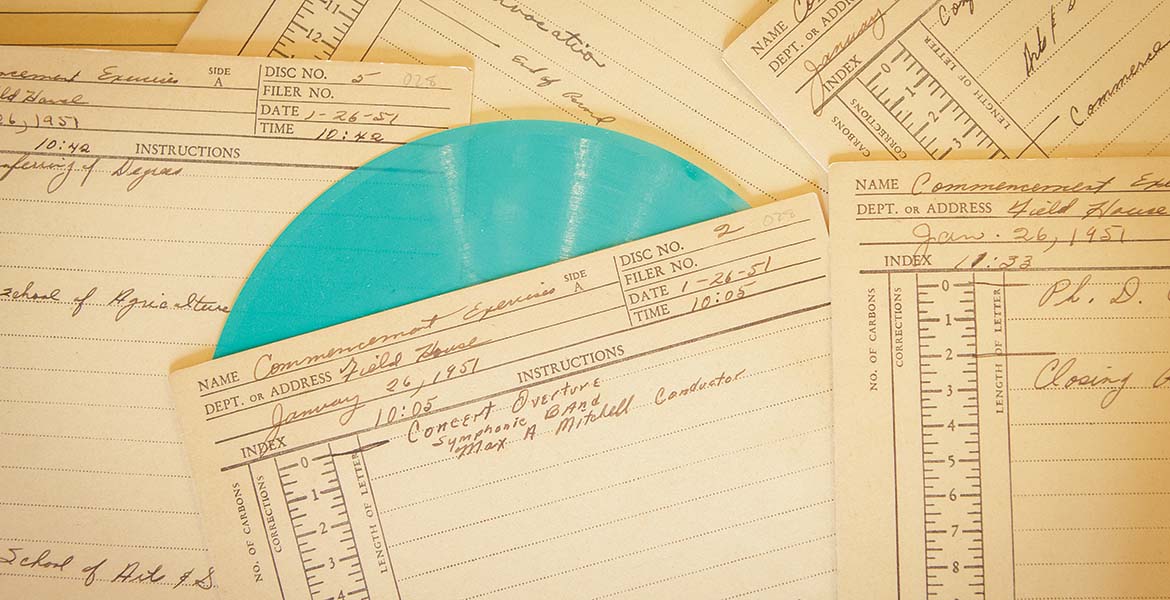 11
12
nvocation
End of Record
NAME Co
DEPT. OR ADDR
January
INDEX
0
1
2
3
CARBONS
CORRECTIONS
LENGTH OF LETTER
Con
Arts &
Commerce
ncement Exercises
SIDE
A
DISC NO. 5 028
FILER NO.
DATE 1-26-51
TIME 10:42
eld House
26, 1951
10:42 INSTRUCTIONS
nferring of Degrees
School of Agriculture
School of Arts & S
NAME Commencement Exercises
SIDE
A
DISC NO. 2 028
FILER NO.
DATE 1-26-51
TIME 10:05
DEPT. OR ADDRESS Field House
January 26, 1951
INDEX 10:05 INSTRUCTIONS
Concert Overture
Symphonic Band
Max A Mitchell Conductor
NO. OF CARBONS
CORRECTIONS
0
1
2
3
4
LENGTH OF LETTER
NAME Commencement Ex
DEPT. OR ADDRESS Field House
Jan. 26, 1951
INDEX 11:33
NO. OF CARBONS
CORRECTIONS
0
1
2
3
4
5
6
7
8
LENGTH OF LETTER
Ph. D.
Closing